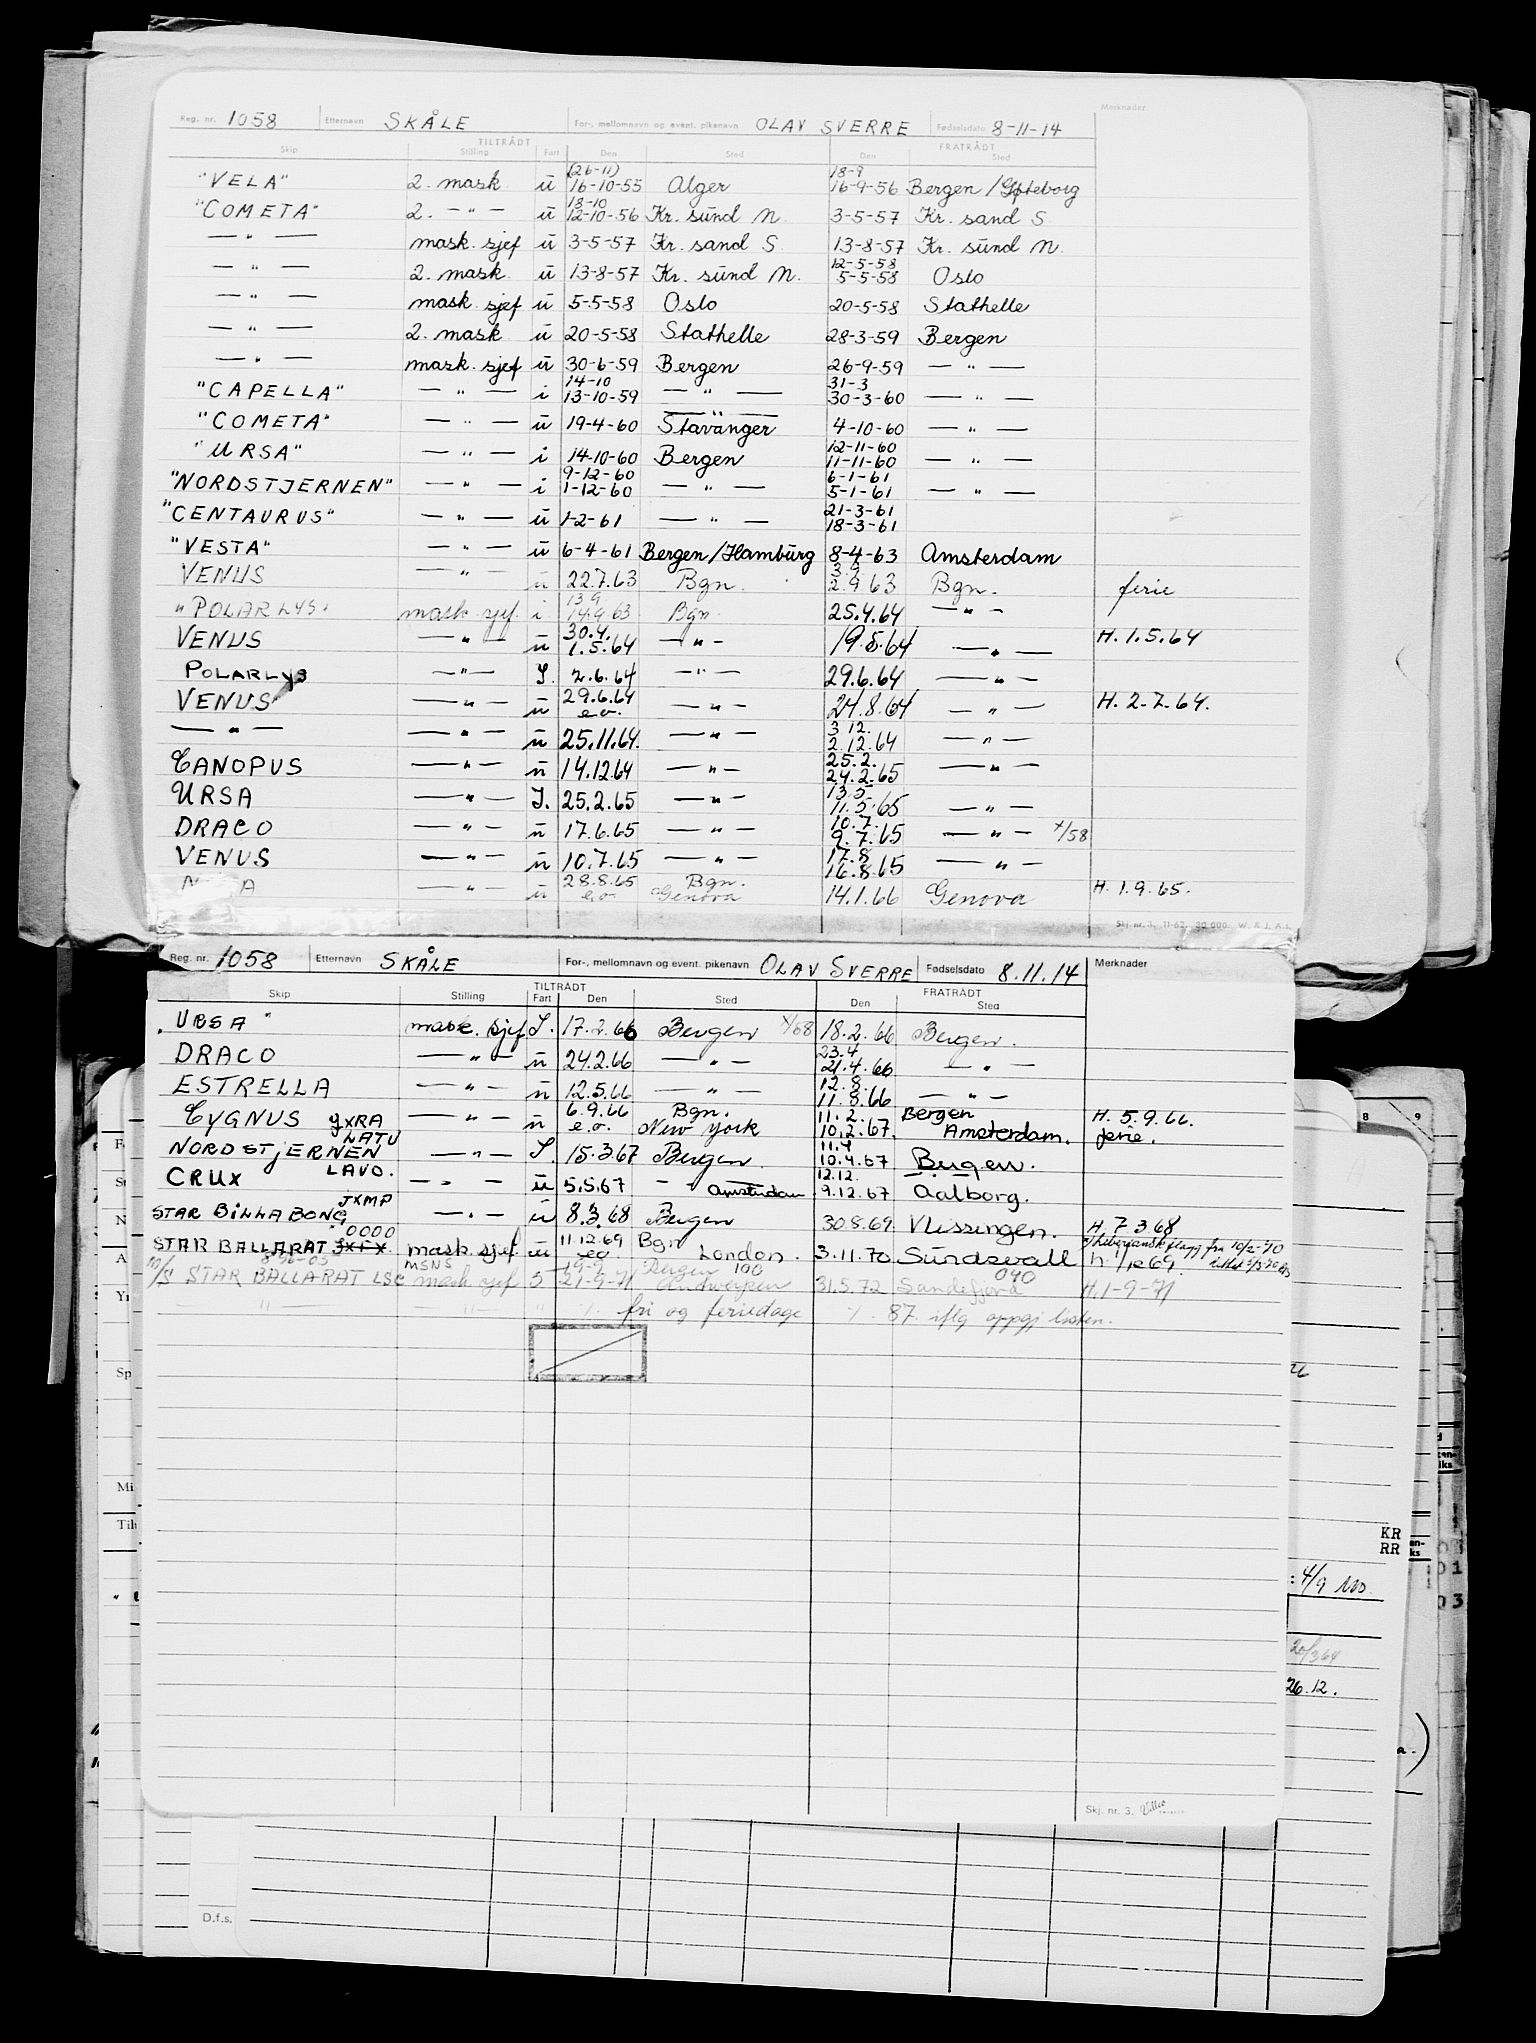 Merknader
Reg. nr. 1058 Etternavn SKÅLE For-, mellomnavn og event. pikenavn OLAV SVERRE Fødselsdato 8-11-14
TILTRÅDT FRATRÅDT
Skip Stilling Fart Den Sted Den Sted
(26-11) 18-9
"VELA" 2. mask ū 16-10-55 Alger 16-9-56 Bergen / Gøteborg
18-10
"COMETA" 2. — " — ū 12-10-56 Kr. sūnd N. 3-5-57 Kr. sand S
— " — mask. sjef ū 3-5-57 Kr. sand S 13-8-57 Kr. sūnd N.
12-5-58
— " — 2. mask ū 13-8-57 Kr. sūnd N. 5-5-58 Oslo
— " — mask sjef ū 5-5-58 Oslo 20-5-58 Stathelle
— " — 2. mask ū 20-5-58 Stathelle 28-3-59 Bergen
— " — mask. sjef ū 30-6-59 Bergen 26-9-59 — " —
14-10 31-3
"CAPELLA" — " — i 13-10-59 — " — 30-3-60 — " —
"COMETA" — " — ū 19-4-60 Stavanger 4-10-60 — " —
12-11-60
"URSA" — " — i 14-10-60 Bergen 11-11-60 — " —
9-12-60 6-1-61
"NORDSTJERNEN" — " — i 1-12-60 — " — 5-1-61 — " —
21-3-61
"CENTAURUS" — " — ū 1-2-61 — " — 18-3-61
"VESTA" — " — ū 6-4-61 Bergen / Hamburg 8-4-63 Amsterdam
3.9
VENUS — " — ū 22.7.63 Bgn. 2.9 63 Bgn. ferie
13 9
"POLARLYS" mask sjef. i 14.9 63 Bgn 25.4.64 — " —
30.4.
VENUS — " — ū 1.5.64 — " — 19.5.64 — " — H. 1.5.64
POLARLYS — " — I. 2.6.64 — " — 29.6.64 — " —
29.6.64
VENUS — " — ū e.o. — " — 24.8.64 — " — H. 2.7.64.
3 12.
— " — — " — ū 25.11.64. — " — 2.12.64 — " —
25.2.
CANOPUS — " — ū 14.12.64 — " — 24.2.65 — " —
13.5
URSA — " — I. 25.2.65 — " — 11.5.65 — " —
10.7.
DRACO — " — ū 17.6.65 — " — 9.7.65 — " — x/58
17.8
VENUS — " — ū 10.7.65 — " — 16.8.65 — " —
28.8.65 Bgn.
— " — ū e.o. Genova 14.1.66 Genova H. 1.9.65.
Skj. nr. 3. 11-62. 30 000. W. & J. A.s
Reg. nr. 1058 Etternavn SKÅLE For-, mellomnavn og event. pikenavn OLAV SVERRE Fødselsdato 8.11.14 Merknader
TILTRÅDT FRATRÅDT
Skip Stilling Fart Den Sted Den Sted
"URSA" mask. sjef I. 17.2.66 Bergen x/68 18.2.66 Bergen.
23.4
DRACO — " — ū 24.2.66 — " — 21.4.66 — " —
12.8.
ESTRELLA — " — ū 12.5.66 — " — 11.8.66 — " —
6.9.66 Bgn. 11.2. Bergen H. 5.9.66.
CYGNUS JXRA — " — ū e.o. New York 10.2.67. Amsterdam. ferie.
LATU 11.4
NORDSTJERNEN — " — I. 15.3.67 Bergen 10.4.67 Bergen.
LAVO. 12.12.
CRUX — " — ū 5.5.67 — " — Amsterdam 9.12.67 Aalborg.
JXMP
STAR BILLABONG — " — ū 8.3.68 Bergen 30.8.69. Vlissingen. H. 7 3 68
0000 11.12.69 Bgn x/Liberiansk flagg fra 10/2-70
STAR BALLARAT mask. sjef ū eo London. 3.11.70 Sundsvall
MSNS 19-9 Bergen 100 040
M/S STAR BALLARAT LSC mask sjef S 21-9-71 Antwerpen 31.5.72 Sandefjord H. 1-9-71
— " — — " — " ./. fri og feriedage ./. 87. iflg oppgj listen.
Skj. nr. 3.
8 9
KR
RR
4/9
20/3 64
26.12.
Sp
Mi
D.f.s.